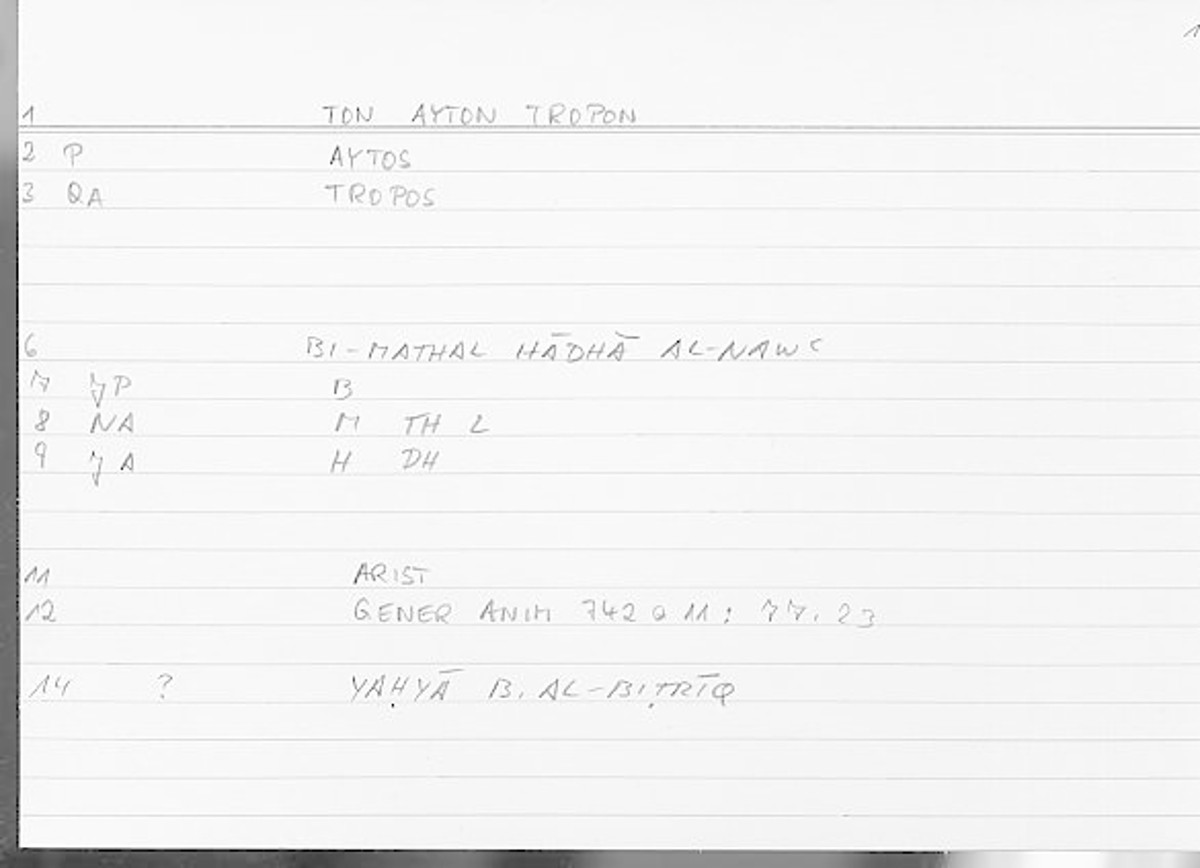 1
1 TON AYTON TROPON
2 P AYTOS
3 QA TROPOS
6 BI-MATHAL HĀDHĀ AL-NAWʿ
7 JP B
8 NA M TH L
9 JA H DH
11 ARIST
12 GENER ANIM 742 a 11: 77.23
14 ? YAḤYĀ B. AL-BIṬRĪQ